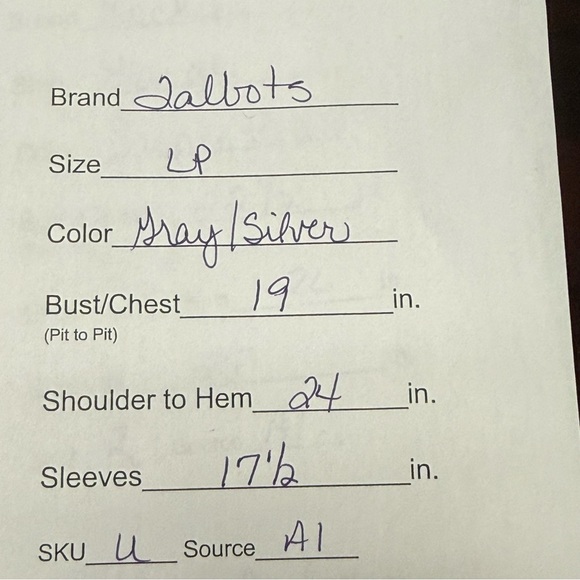 Brand Talbots
Size LP
Color Gray/Silver
Bust/Chest 19 in.
(Pit to Pit)
Shoulder to Hem 24 in.
Sleeves 17 1/2 in.
SKU U Source A1